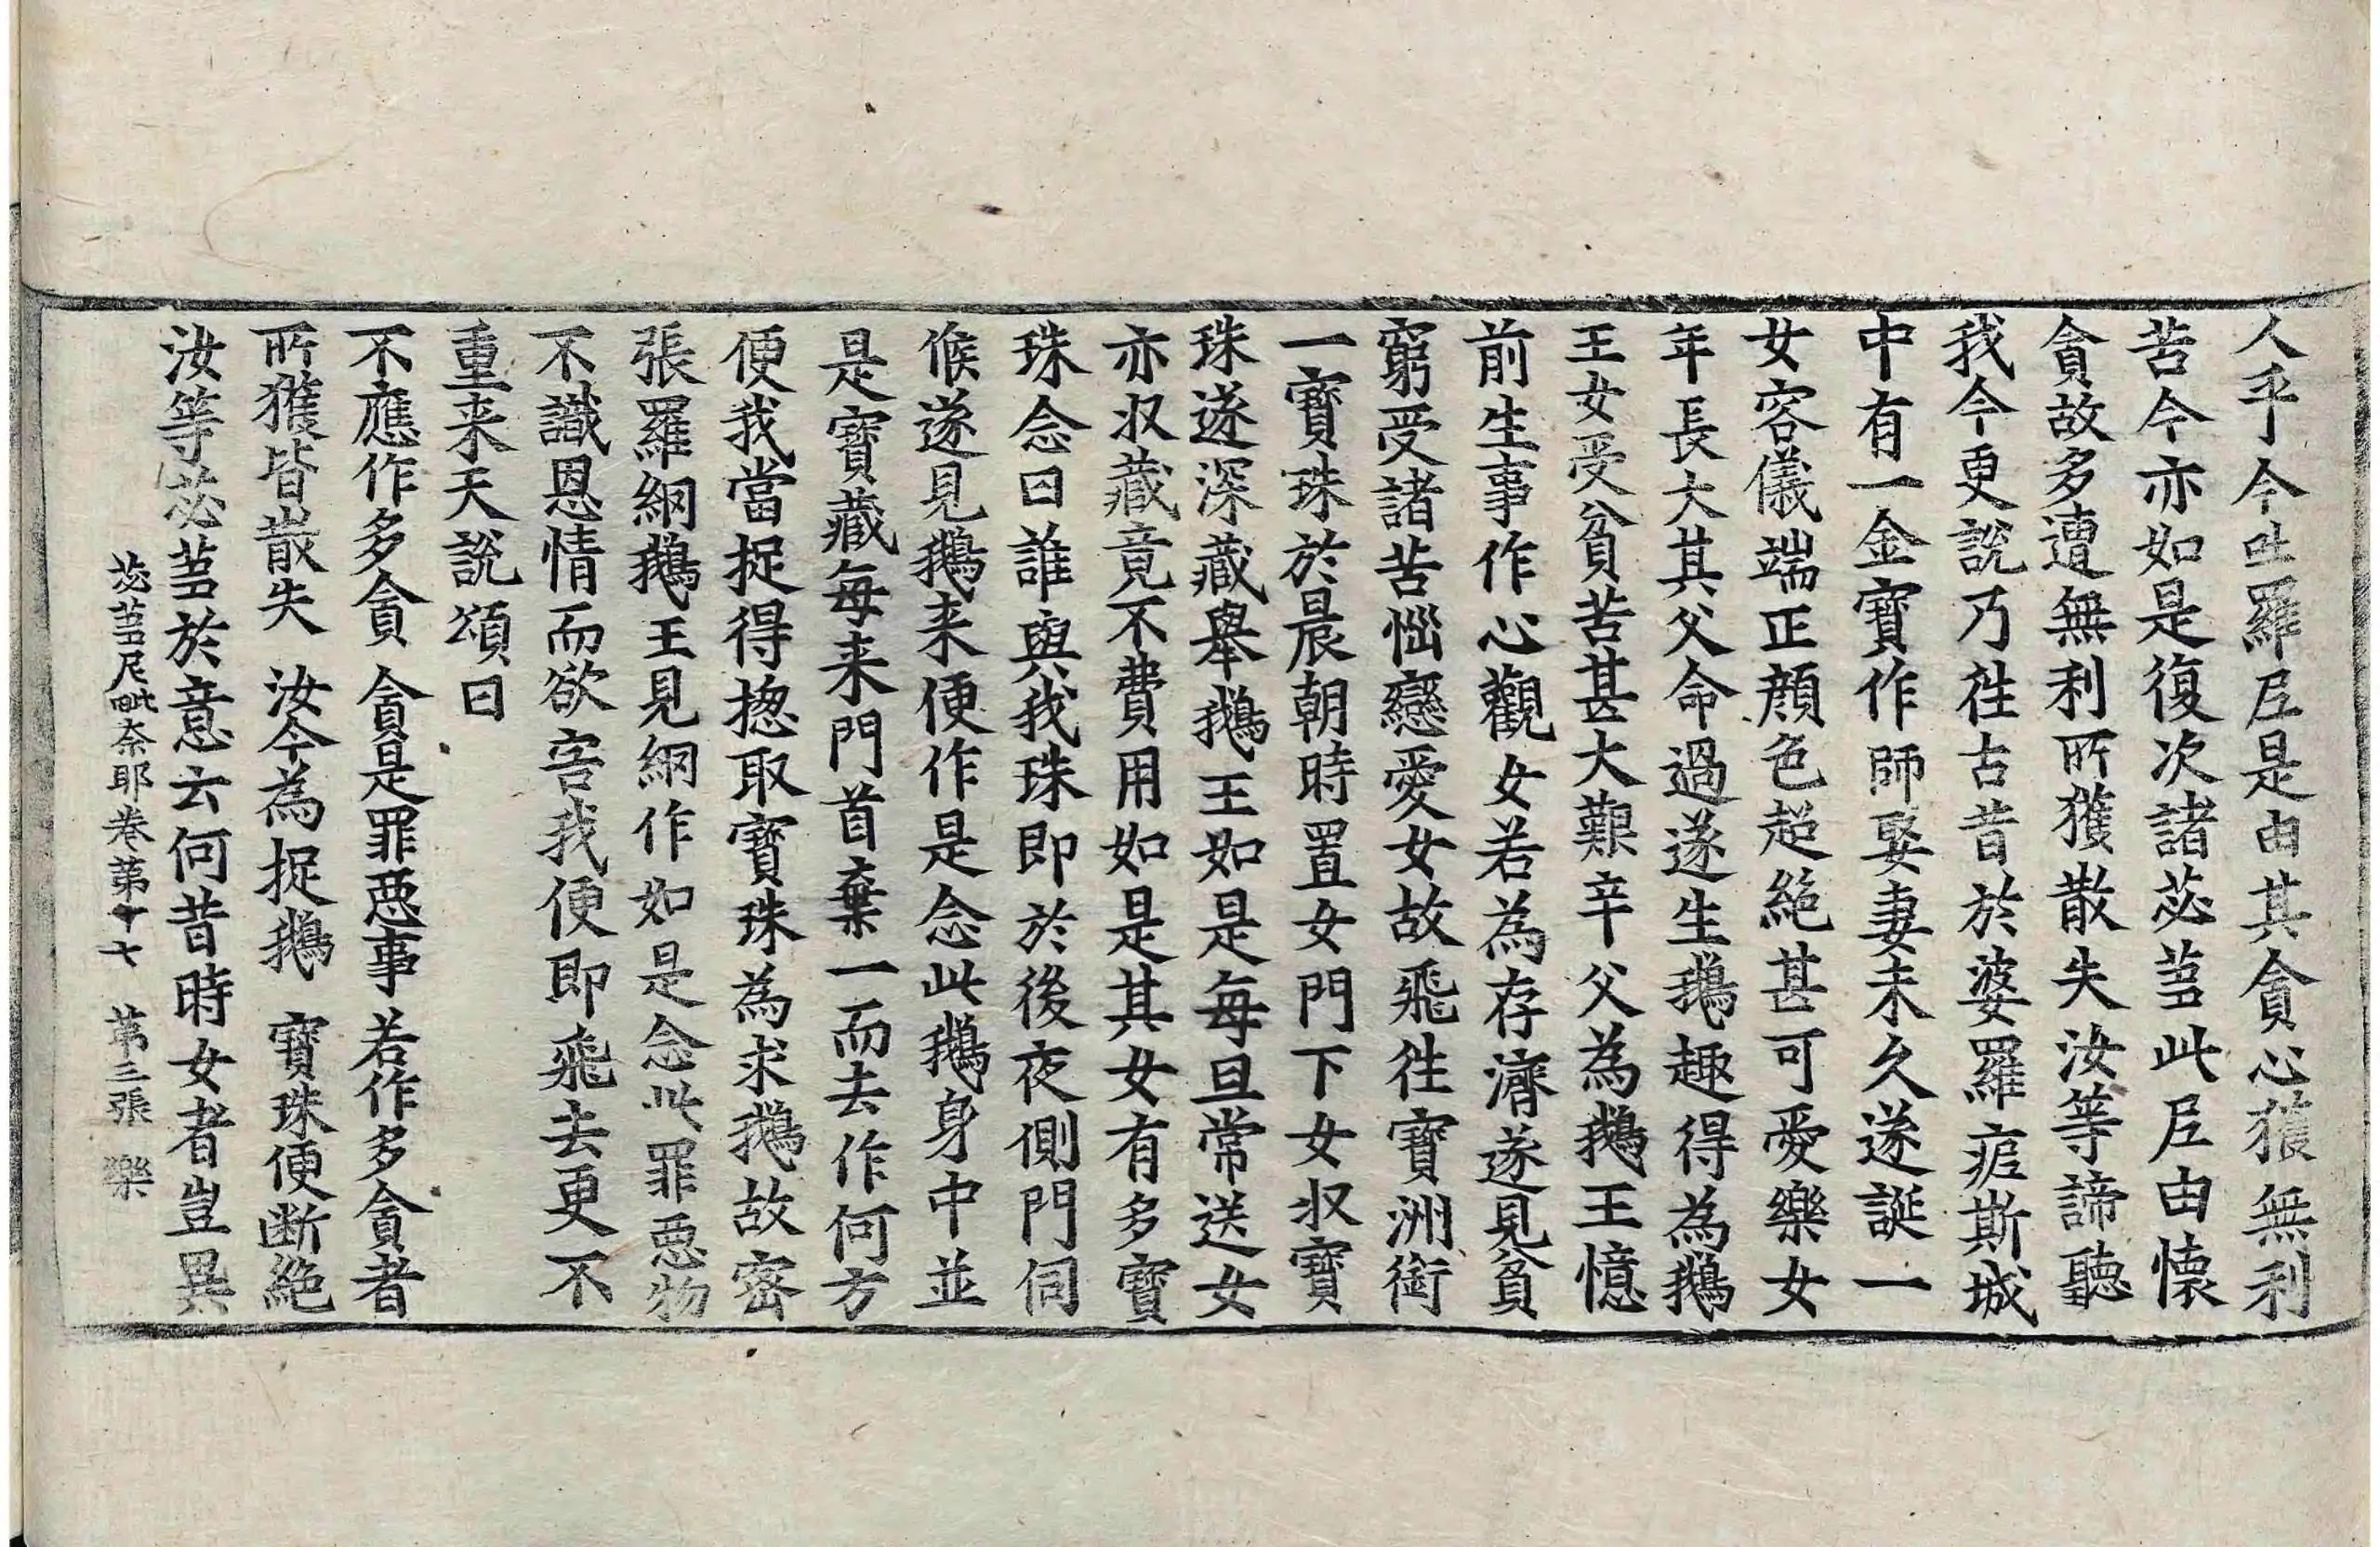 人乎今吐羅尼是由其貪心獲無利
苦今亦如是復次諸苾芻此尼由懷
貪故多遭無利所獲散失汝等諦聽
我今更說乃往古昔於婆羅痆斯城
中有一金寶作師娶妻未久遂誕一
女容儀端正顔色超絶甚可愛樂女
年長大其父命過遂生鵝趣得為鵝
王女受貧苦甚大艱辛父為鵝王憶
前生事作心觀女若為存濟遂見貧
窮受諸苦惱戀愛女故飛往寶洲銜
一寶珠於晨朝時置女門下女収寶
珠遂深藏舉鵝王如是每旦常送女
亦収藏竟不費用如是其女有多寶
珠念曰誰與我珠即於後夜側門伺
候遂見鵝来便作是念此鵝身中並
是寶藏每来門首棄一而去作何方
便我當捉得揔取寶珠為求鵝故密
張羅網鵝王見網作如是念此罪惡物
不識恩情而欲害我便即飛去更不
重来天說頌曰
不應作多貪　貪是罪惡事　若作多貪者
所獲皆散失　汝今為捉鵝　寶珠便断絶
汝等苾芻於意云何昔時女者豈異
苾芻尼毗奈耶卷第十七　第三張　樂